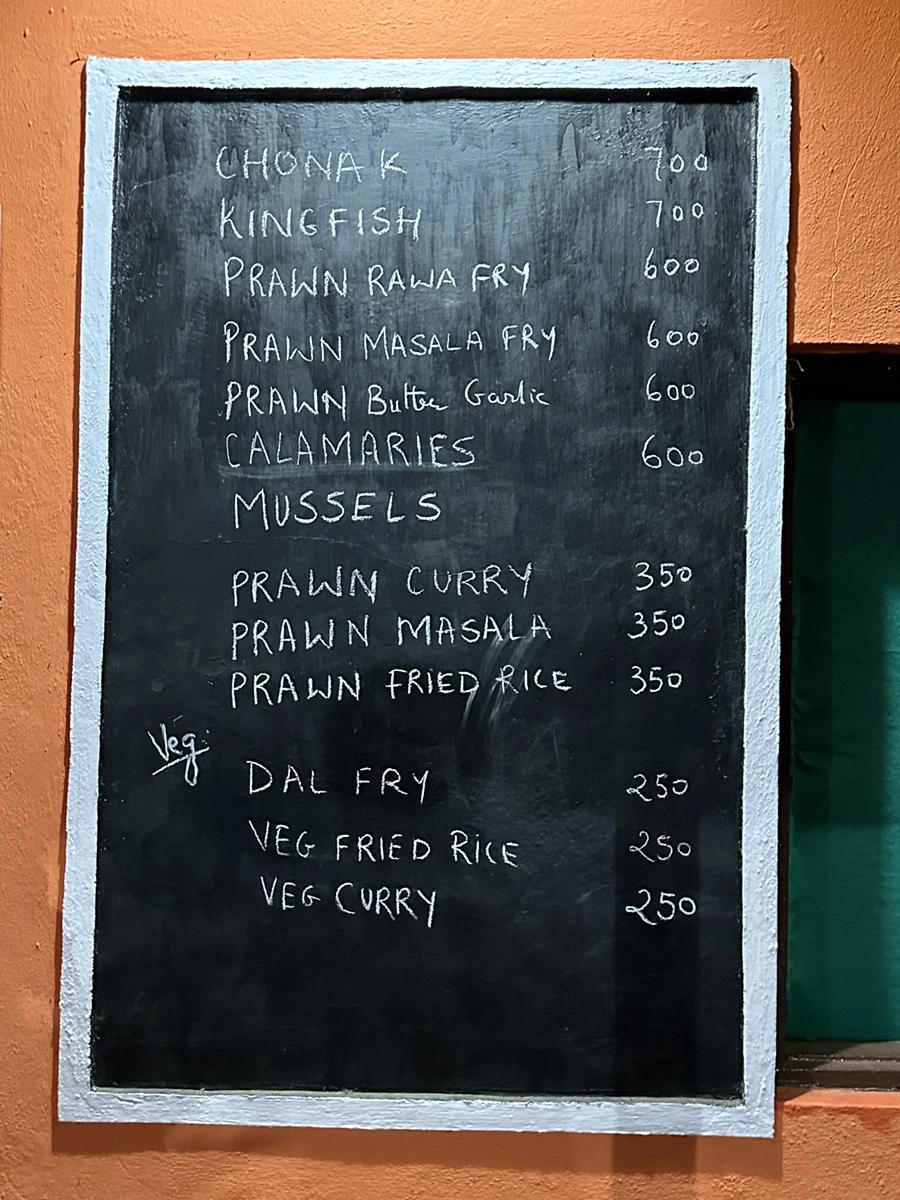 CHONAK 700
KINGFISH 700
PRAWN RAWA FRY 600
PRAWN MASALA FRY 600
PRAWN Butter Garlic 600
CALAMARIES 600
MUSSELS
PRAWN CURRY 350
PRAWN MASALA 350
PRAWN FRIED RICE 350
Veg
DAL FRY 250
VEG FRIED RiCE 250
VEG CURRY 250